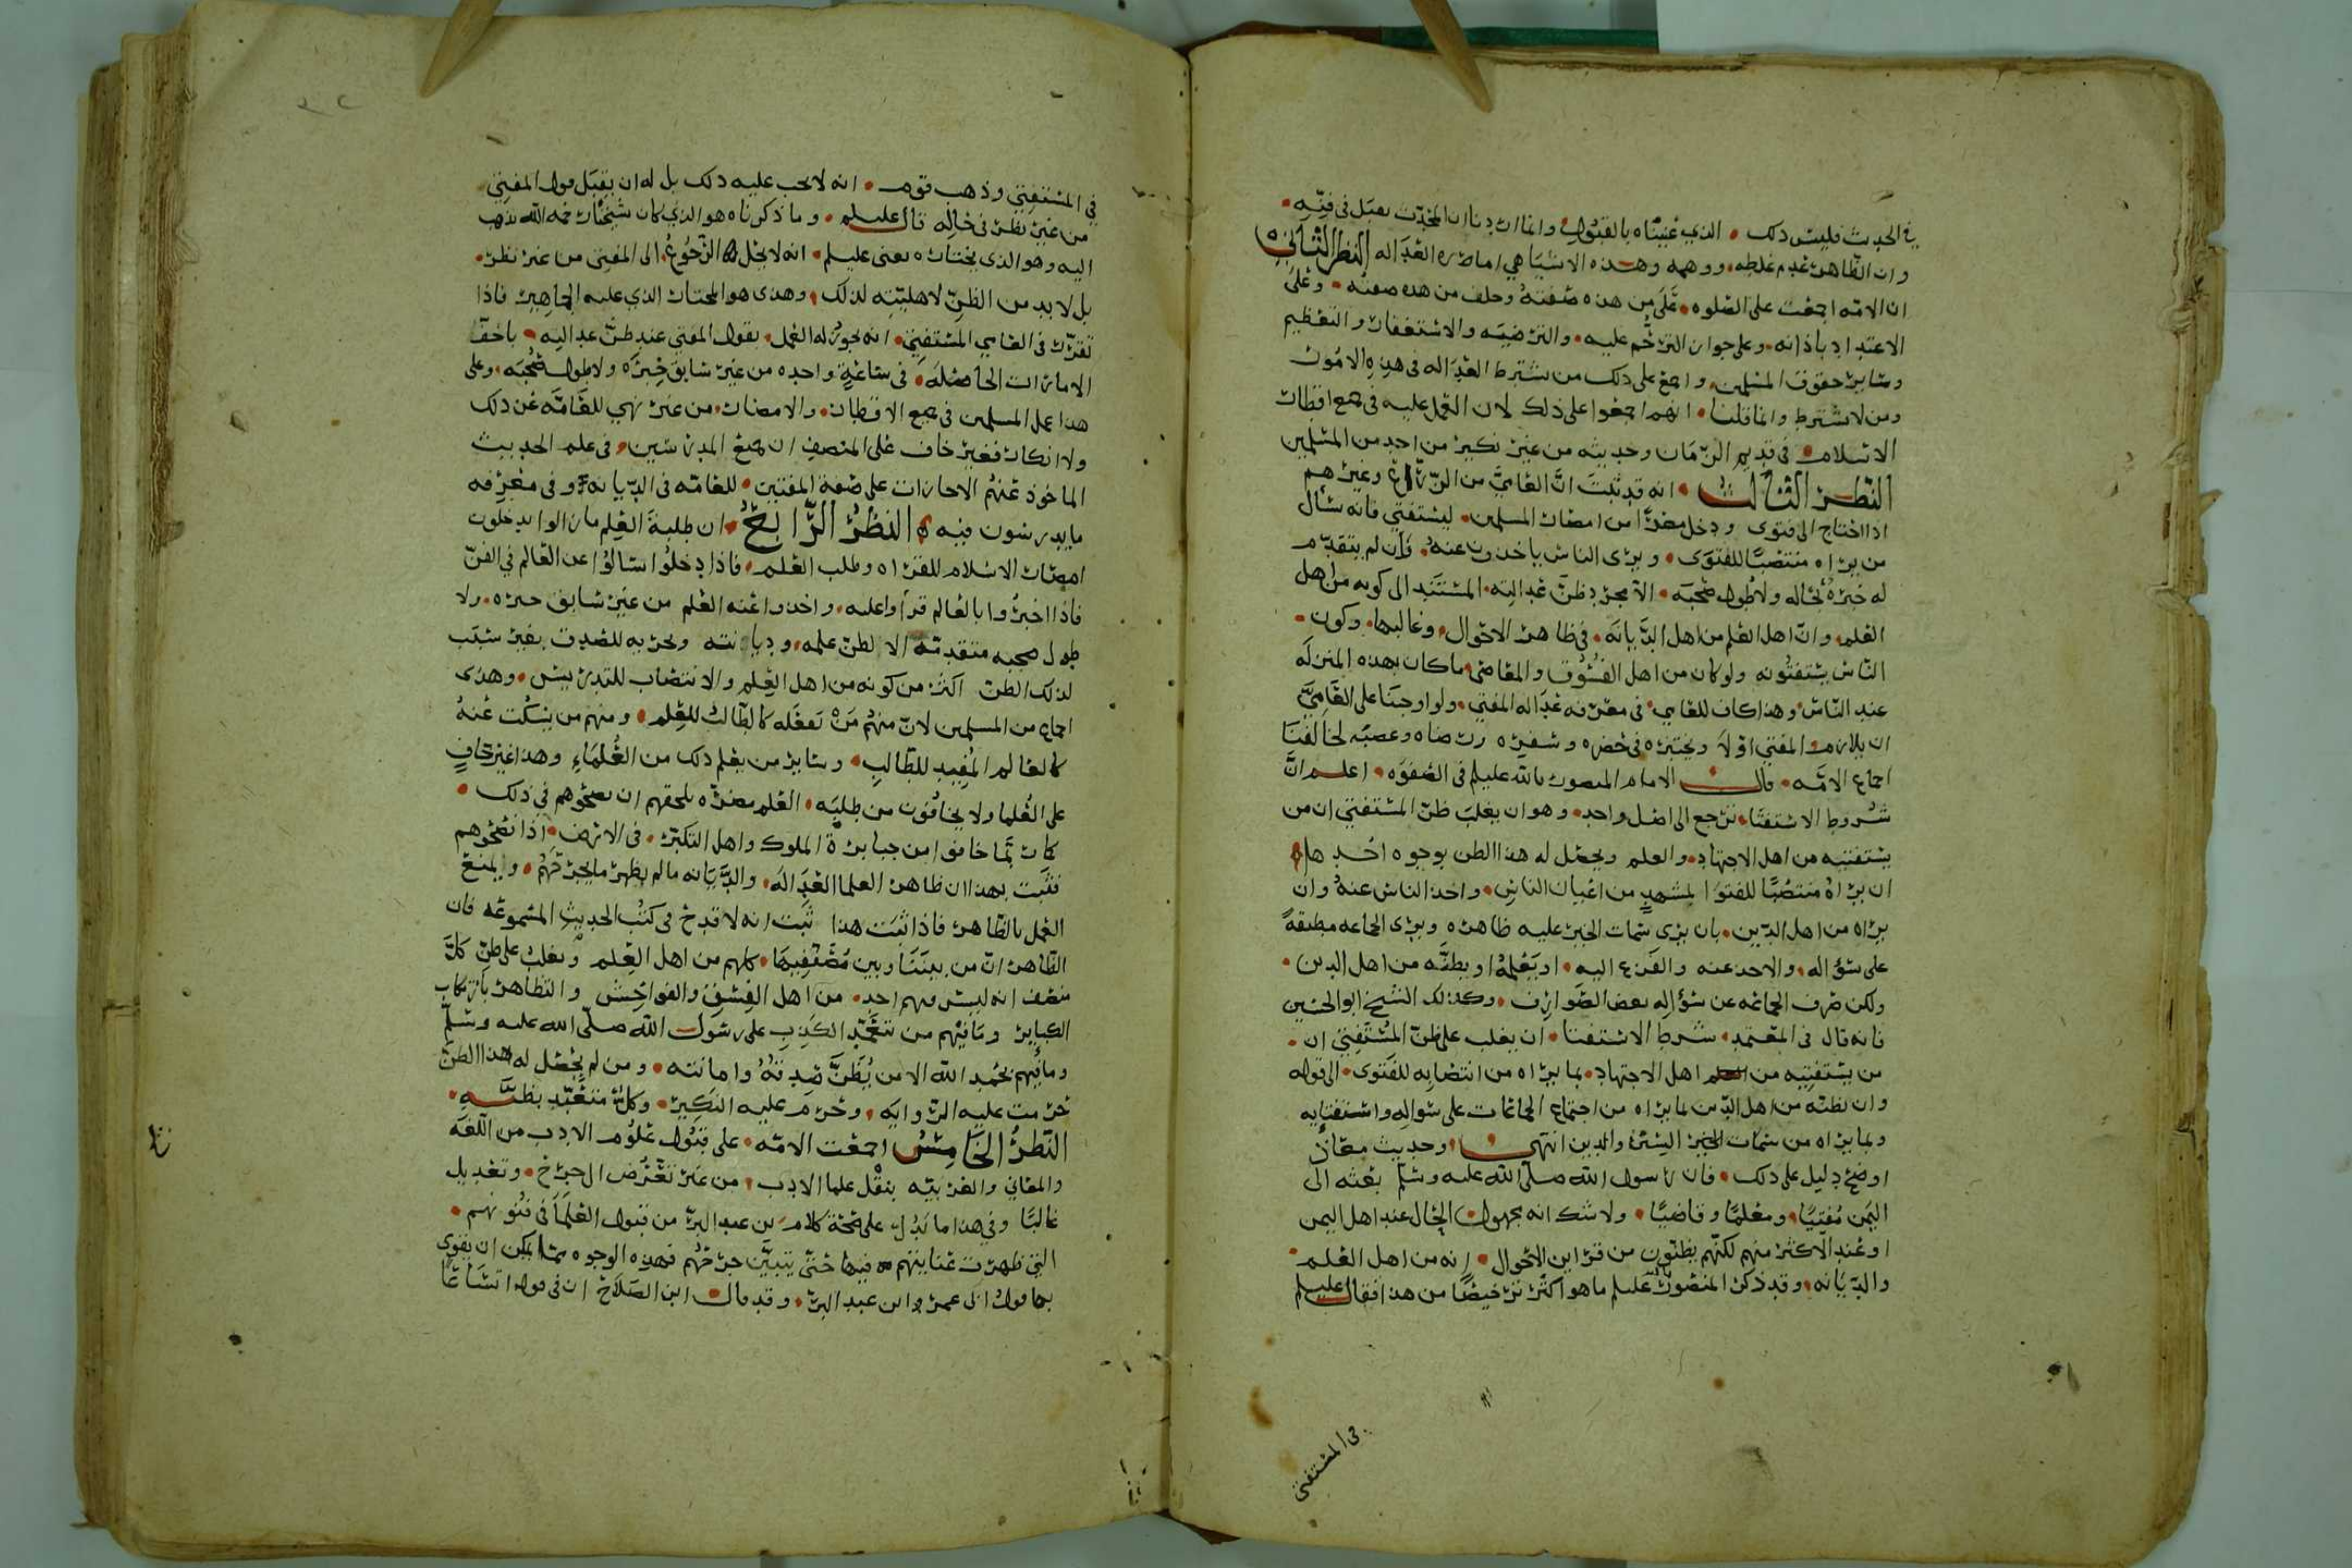 في الحديث فليس ذلك • الذي عنيناه بالقبول وانما اردنا ان المحدث يقبل في فنه •
وان الظاهر عدم غلطه ووهمه وهذه الاشيا هي امارة العداله النظر الثاني
ان الامه اجمعت على الصلوه على من هذه صفته وخلف من هذه صفته • وعلى
الاعتداد باذانه وعلى جواز الترحم عليه • والترضيه والاستغفار والتعظيم
وساير حقوق المسلمين واجمع على ذلك من يشترط العداله في هذه الامور
ومن لا يشترط وانما قلنا • انهم اجمعوا على ذلك لان العمل عليه في جميع اقطار
الاسلام • في قديم الزمان وحديثه من غير نكير من احد من المسلمين
النظر الثالث • انه قد ثبت ان العامي من الزراع وغيرهم
اذا احتاج الى فتوى ودخل مصرا من امصار المسلمين • ليستفتي فانه سال
من يراه منتصبا للفتوى • ويرى الناس ياخذون عنه • فان لم يتقدم
له خبره بحاله ولا طول صحبه • الا مجرد ظن عدالته • المستند الى كونه من اهل
العلم • وان اهل العلم من اهل الديانه • في ظاهر الاحوال وغالبها • وكون •
الناس يستفتونه ولو كان من اهل الفسوق والمعاصي ما كان بهذه المنزله
عند الناس • وهذا كاف للعامي • في معرفه عداله المفتي • ولو اوجبنا على العامي
ان يلازم المفتي اولا ويختبره في حضره وسفره رضاه وغضبه لخالفنا
اجماع الامه • قال الامام المنصور بالله عليلم في الصفوه • اعلم ان
شروط الاستفتا • ترجع الى اصل واحد • وهو ان يغلب ظن المستفتي ان من
يستفتيه من اهل الاجتهاد • والعلم ويحصل له هذا الظن بوجوه احدها
ان يراه منتصبا للفتوا بمشهد من اعيان الناس • واخذ الناس عنه وان
يراه من اهل الدين • بان يرى سمات الخير عليه ظاهره ويرى الجماعه مطبقة
على سؤاله • والاخذ عنه والفزع اليه • او يعلم او يظنه من اهل الدين •
ولكن صرف الجماعه عن سؤاله بعض الصوارف • وكذلك الشيخ ابو الحسين
فانه قال في المعتمد • شرط الاستفتا • ان يغلب على ظن المستفتي ان •
من يستفتيه من اهل الاجتهاد • بما يراه من انتصابه للفتوى • الى قوله
وان يظنه من اهل الدين لما يراه من اجتماع الجماعات على سواله واستفتايه
وبما يراه من سمات الخير الستر والدين انتهى وحديث معاذ
اوضح دليل على ذلك • فان رسول الله صلى الله عليه وسلم بعثه الى
اليمن مفتيا • ومعلما وقاضيا • ولا شك انه مجهول الحال عند اهل اليمن
او عند الاكثر منهم لكنهم يظنون من قراين الاحوال • انه من اهل العلم •
والديانه • وقد ذكر المنصور عليلم ما هو اكثر ترخيصا من هذا فقال عليلم
في المستفتي
في المستفتي وذهب قوم • انه لا يجب عليه ذلك بل له ان يقبل قول المفتي
من غير نظر في حاله قال عليلم • وما ذكرناه هو الذي كان شيخنا رحمه الله يذهب
اليه وهو الذي يختاره يعني عليلم • انه لا يحل الرجوع الى المفتي من غير نظر •
بل لا بد من الظن لاهليته لذلك • وهذى هو المختار الذي عليه الجماهير فاذا
تقرر في العامي المستفتي • انه يجوز له العمل • بقول المفتي عند ظن عدالته • باخف
الامارات الحاصله • في ساعة واحده من غير سابق خبره ولا طول صحبه • وعلى
هذا عمل المسلمين في جميع الاقطار • والامصار • من غير نهي للعامه عن ذلك
ولا انكار فغير خاف على المنصف ان جميع المدرسين • في علم الحديث
الماخوذ عنهم الاجازات على صفة المفتين • للعامه في الديانه وفي معرفه
ما يدرسون فيه النظر الرابع • ان طلبة العلم ما زالوا يدخلون
امصار الاسلام للقراه وطلب العلم • فاذا دخلوا سالوا عن العالم في الفن
فاذا اخبروا بالعالم قراوا عليه • واخذوا عنه العلم من غير سابق خبره • ولا
طول صحبه متقدمه الا لظن علمه • وديانته وتحريه للصدق بغير سبب
لذلك الظن اكثر من كونه من اهل العلم والانتصاب للتدريس • وهذى
اجماع من المسلمين لان منهم من يفعله كالطالب للعلم • ومنهم من يسكت عنه
كالعالم المفيد للطالب • وساير من يعلم ذلك من العلماء وهذا غير خاف
على العلما ولا يخافون من طلبه • العلم مضره يلحقهم ان نصحوهم في ذلك •
كما ربما خافوا من جبابرة الملوك واهل التكبر • في الارض • اذا نصحوهم
فثبت بهذا ان ظاهر العلما العداله • والديانه ما لم يظهر ما يجرحهم • ويمنع
العمل بالظاهر فاذا ثبت هذا ثبت انه لا قدح في كتب الحديث المسموعه فان
الظاهر ان من بيننا وبين مصنفيها • كلهم من اهل العلم ويغلب على ظن كل
منصف انه ليس فيهم احد • من اهل الفسق والفواحش والتظاهر بارتكاب
الكباير وما فيهم من يتعمد الكذب على رسول الله صلى الله عليه وسلم
وما فيهم بحمد الله الا من يظن صدقه وامانته • ومن لم يحصل له هذا الظن
حرمت عليه الروايه • وحرم عليه النكير • وكل متعبد بظنه •
النظر الخامس اجمعت الامه • على قبول علوم الادب من اللغه
والمعاني والعربيه بنقل علما الادب • من غير تعرض الى جرح • وتعديل
غالبا وفي هذا ما يدل على صحة كلام بن عبد البر من قبول العلما في فنونهم •
التي ظهرت عنايتهم فيها حتى يتبين جرحهم فهذه الوجوه مما يمكن ان يقوى
بها قول ابي عمر وابن عبد البر • وقد قال ابن الصلاح ان في قوله اتساعا